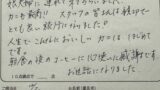 娘夫婦に連れて来てもらいました。
カニが最高!! スタッフの皆さんは親切で
とても良い旅行になりました。
人生でこんなにおいしいカニははじめて
です。
朝食の後のコーヒーに心使いに感謝です
お世話になりました。